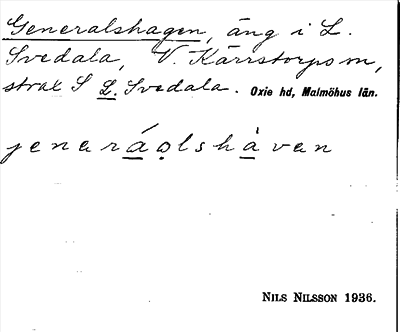 Generalshagen, äng i L.
Svedala, V. Kärrstorps sn,
strax S L. Svedala. Oxie hd, Malmöhus län.
jenaráo̥lshàvan
NILS NILSSON 1936.